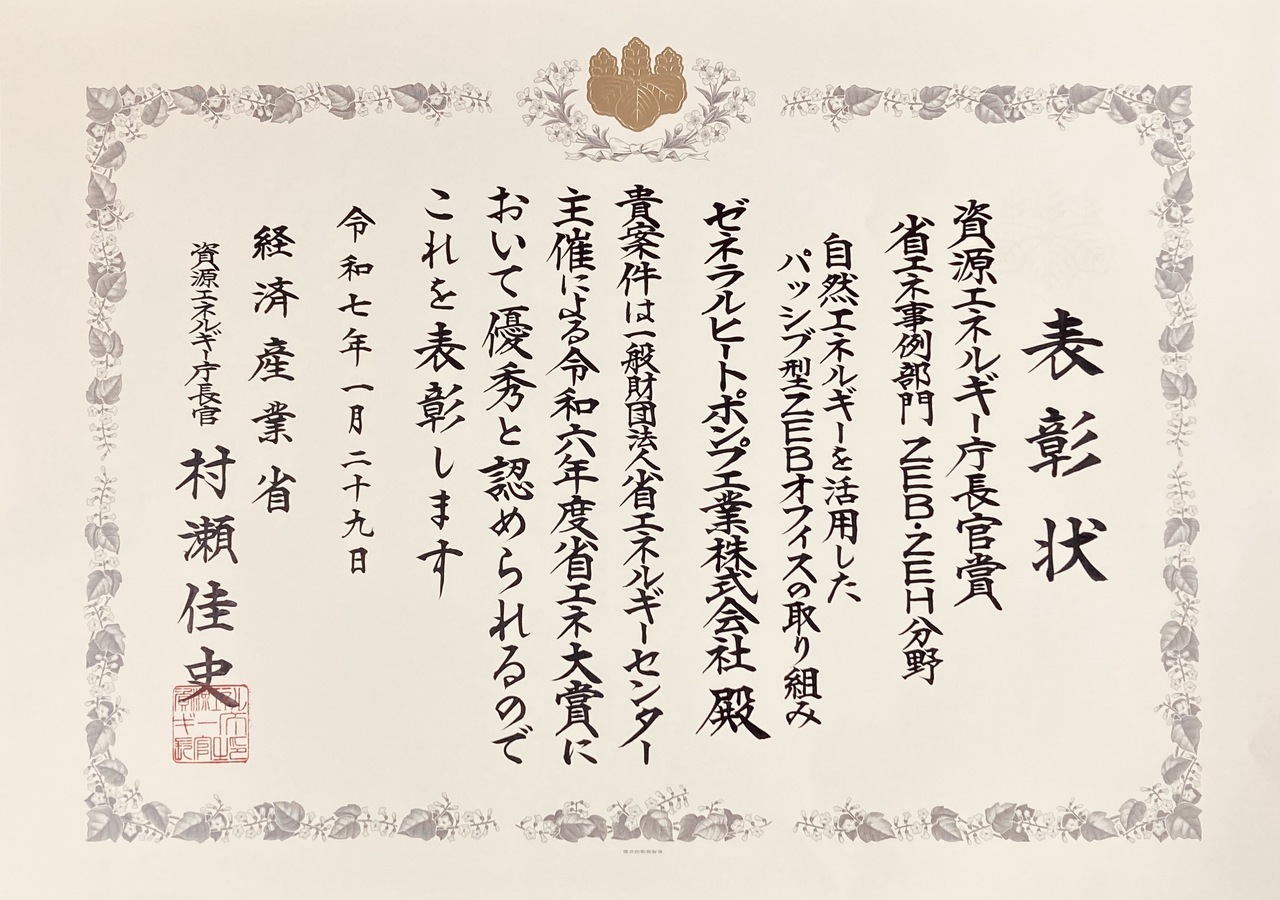 表彰状
資源エネルギー庁長官賞
省エネ事例部門 ZEB・ZEH分野
自然エネルギーを活用した
パッシブ型ZEBオフィスの取り組み
ゼネラルヒートポンプ工業株式会社 殿
貴案件は一般財団法人省エネルギーセンター
主催による令和六年度省エネ大賞に
おいて優秀と認められるので
これを表彰します
令和七年一月二十九日
経済産業省
資源エネルギー庁長官 村瀬佳史